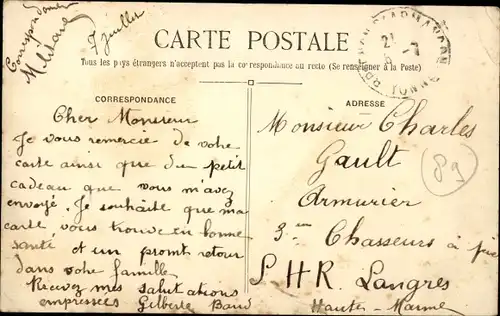 Correspondance
7 juillet
CARTE POSTALE
Tous les pays étrangers n'acceptent pas la correspondance au recto (Se renseigner à la Poste)
CORRESPONDANCE
Cher Monsieur
Je vous remercie de votre
carte ainsi que du petit
cadeau que vous m'avez
envoyé. Je souhaite que ma
carte, vous trouve en bonne
santé et un promt retour
dans votre famille
Recevez mes salutations
empressées Gilberte
ADRESSE
Monsieur Charles
Gault
Armurier
3em Chasseurs à pied
S. H R. Langres
Haute-Marne
89
21 -7
YONNE